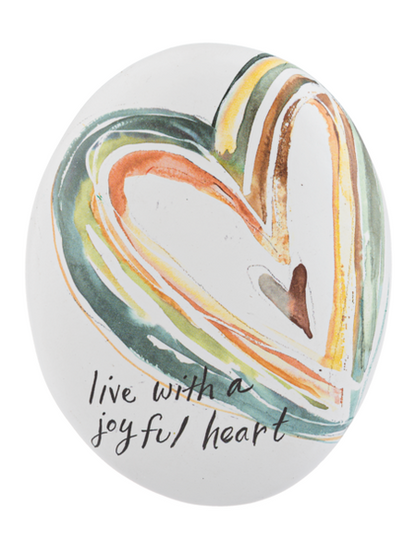 live with a
joyful heart